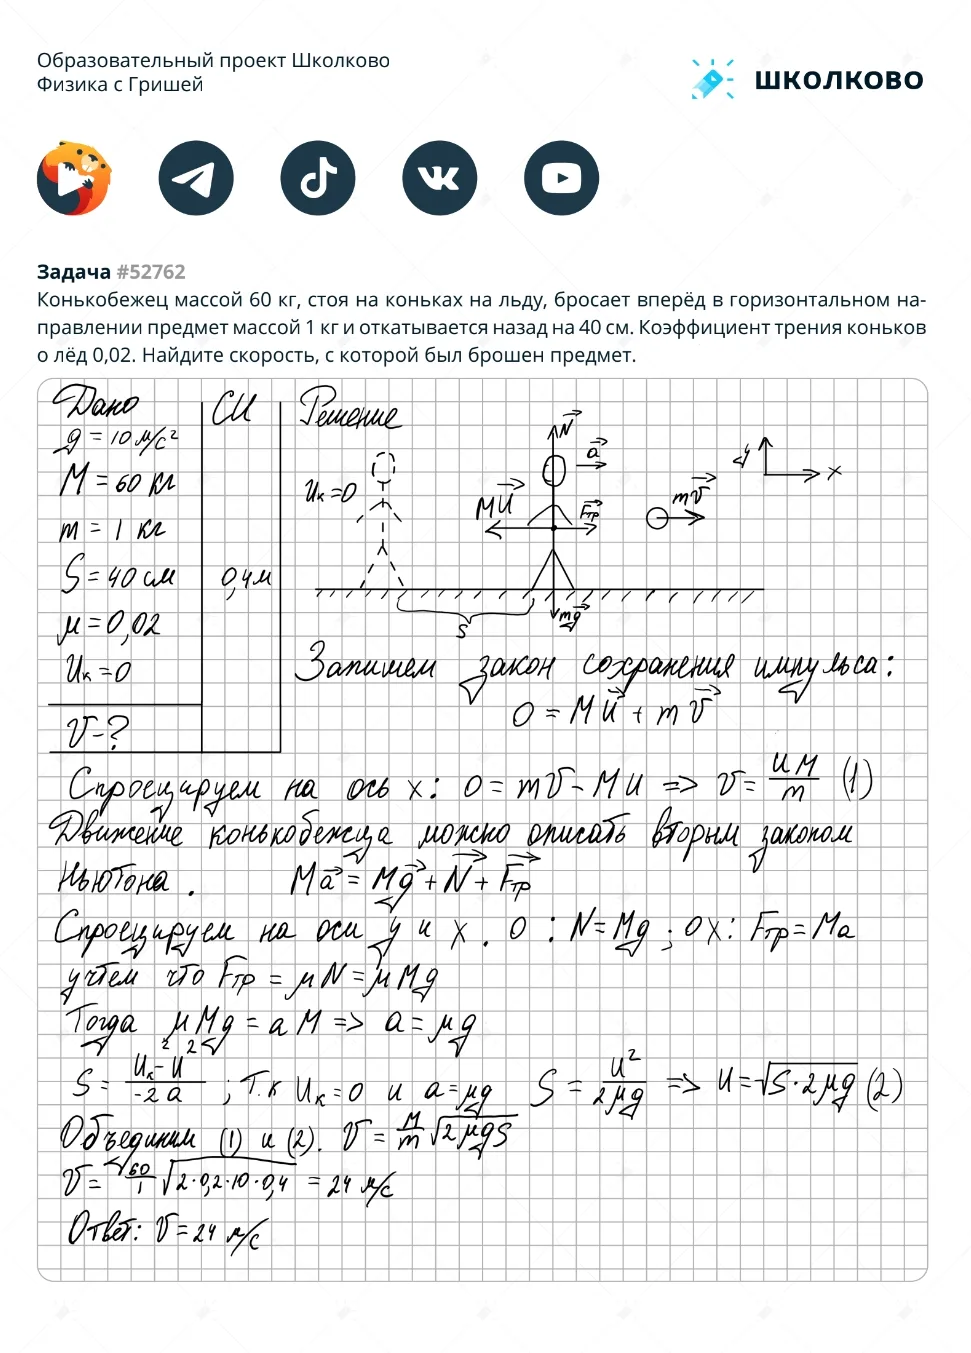 Образовательный проект Школково
Физика с Гришей
ШКОЛКОВО
Задача #52762
Конькобежец массой 60 кг, стоя на коньках на льду, бросает вперёд в горизонтальном на-
правлении предмет массой 1 кг и откатывается назад на 40 см. Коэффициент трения коньков
о лёд 0,02. Найдите скорость, с которой был брошен предмет.
Дано СИ Решение
g = 10 м/с²
M = 60 кг
m = 1 кг
S = 40 см 0,4м
μ = 0,02
Uк = 0
V-?
Uк = 0
MU⃗
N⃗
a⃗
F⃗тр
mV⃗
y
x
S
mg⃗
Запишем закон сохранения импульса:
0 = MU⃗ + mV⃗
Спроецируем на ось x: 0 = mV - MU => V = UM/m (1)
Движение конькобежца можно описать вторым законом
Ньютона. Ma⃗ = Mg⃗ + N⃗ + F⃗тр
Спроецируем на оси y и x. 0 : N = Mg ; 0x: Fтр = Ma
учтём что Fтр = μN = μMg
Тогда μMg = aM => a = μg
S = (Uк² - U²)/(-2a) ; т.к Uк = 0 и a = μg S = U²/(2μg) => U = √(S·2μg) (2)
Объединим (1) и (2). V = M/m √(2μgS)
V = 60/1 √(2·0,2·10·0,4) = 24 м/с
Ответ: V = 24 м/с